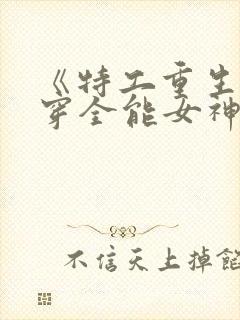 《特工重生
穿全能女神
不信天上掉馅